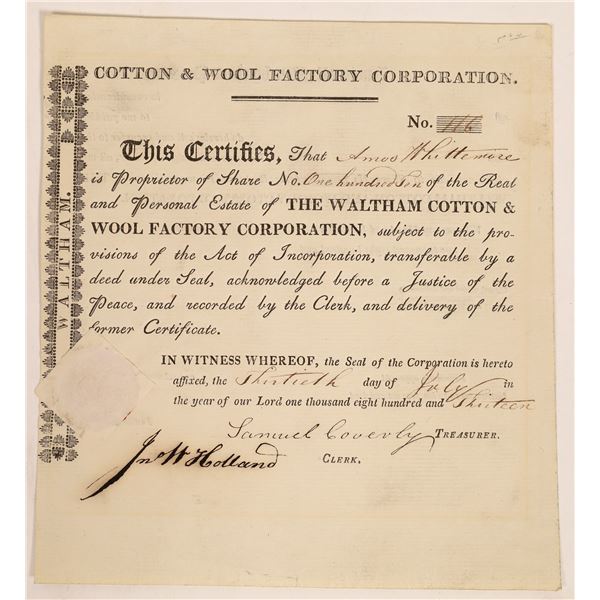 COTTON & WOOL FACTORY CORPORATION.
WALTHAM.
No. 116
This Certifies, That Amos Whittemore
is Proprietor of Share No. One hundred Ten of the Real
and Personal Estate of THE WALTHAM COTTON &
WOOL FACTORY CORPORATION, subject to the pro-
visions of the Act of Incorporation, transferable by a
deed under Seal, acknowledged before a Justice of the
Peace, and recorded by the Clerk, and delivery of the
former Certificate.
IN WITNESS WHEREOF, the Seal of the Corporation is hereto
affixed, the Thirtieth day of July in
the year of our Lord one thousand eight hundred and Thirteen
Samuel Coverly TREASURER.
Jno W Holland CLERK.